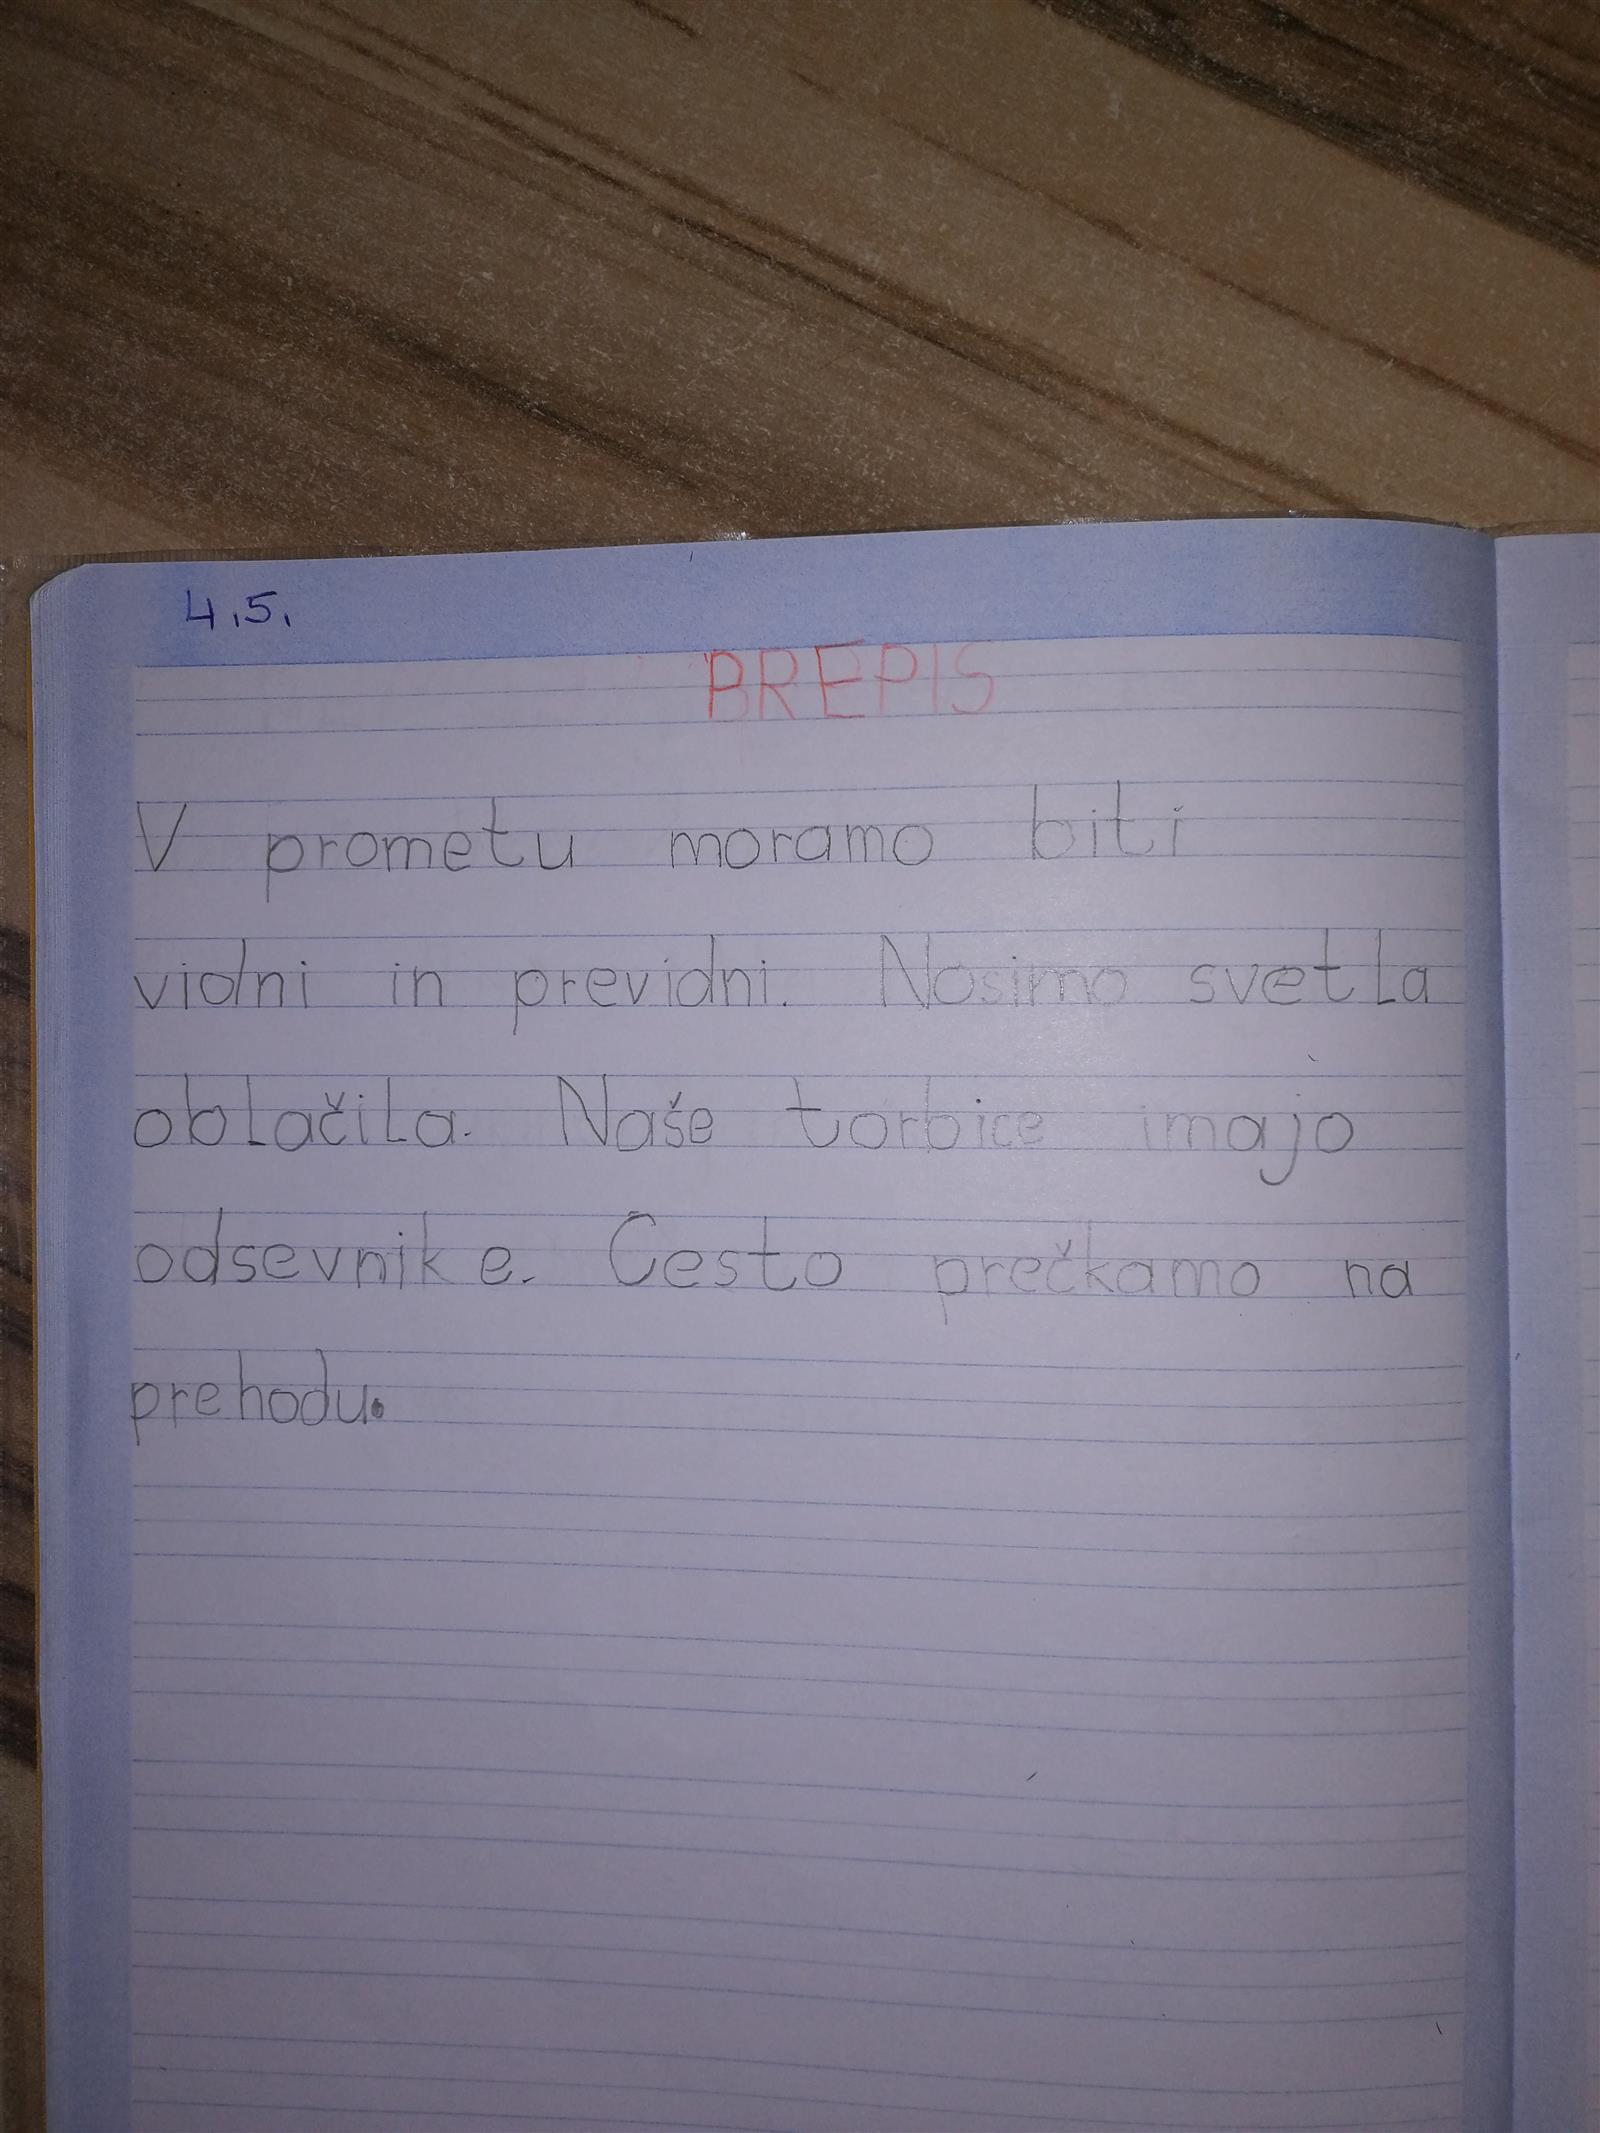 4.5.
BREPIS
V prometu moramo biti
vidni in previdni. Nosimo svetla
oblačila. Naše torbice imajo
odsevnike. Cesto prečkamo na
prehodu.